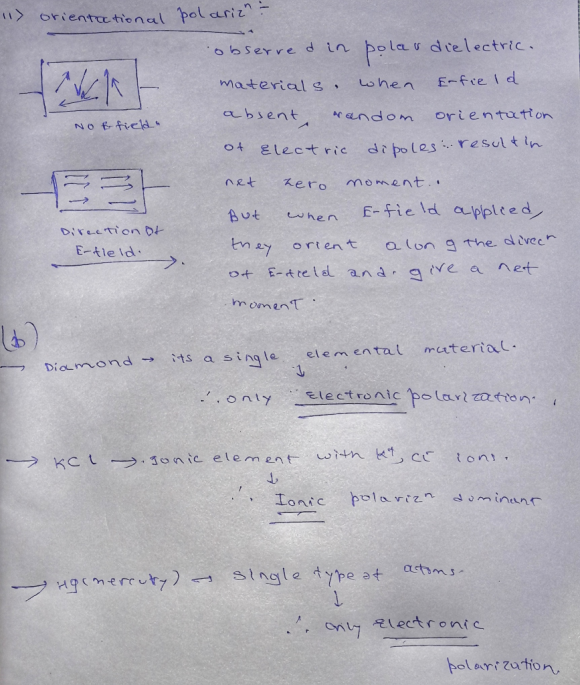 11) orientational polarizⁿ :-
observed in polar dielectric.
materials. when E-field
absent, random orientation
of electric dipoles ∴ result in
net zero moment.
But when E-field applied,
they orient along the direcⁿ
of E-field and give a net
moment.
NO E field.
Direction Of
E-field.
(b)
→ Diamond → its a single elemental material.
↓
∴ only Electronic polarization.
→ KCl → Ionic element with K⁺, Cl⁻ ions.
↓
∴ Ionic polarizⁿ dominant
→ Hg(mercury) → single type of atoms.
↓
∴ only Electronic
polarization.